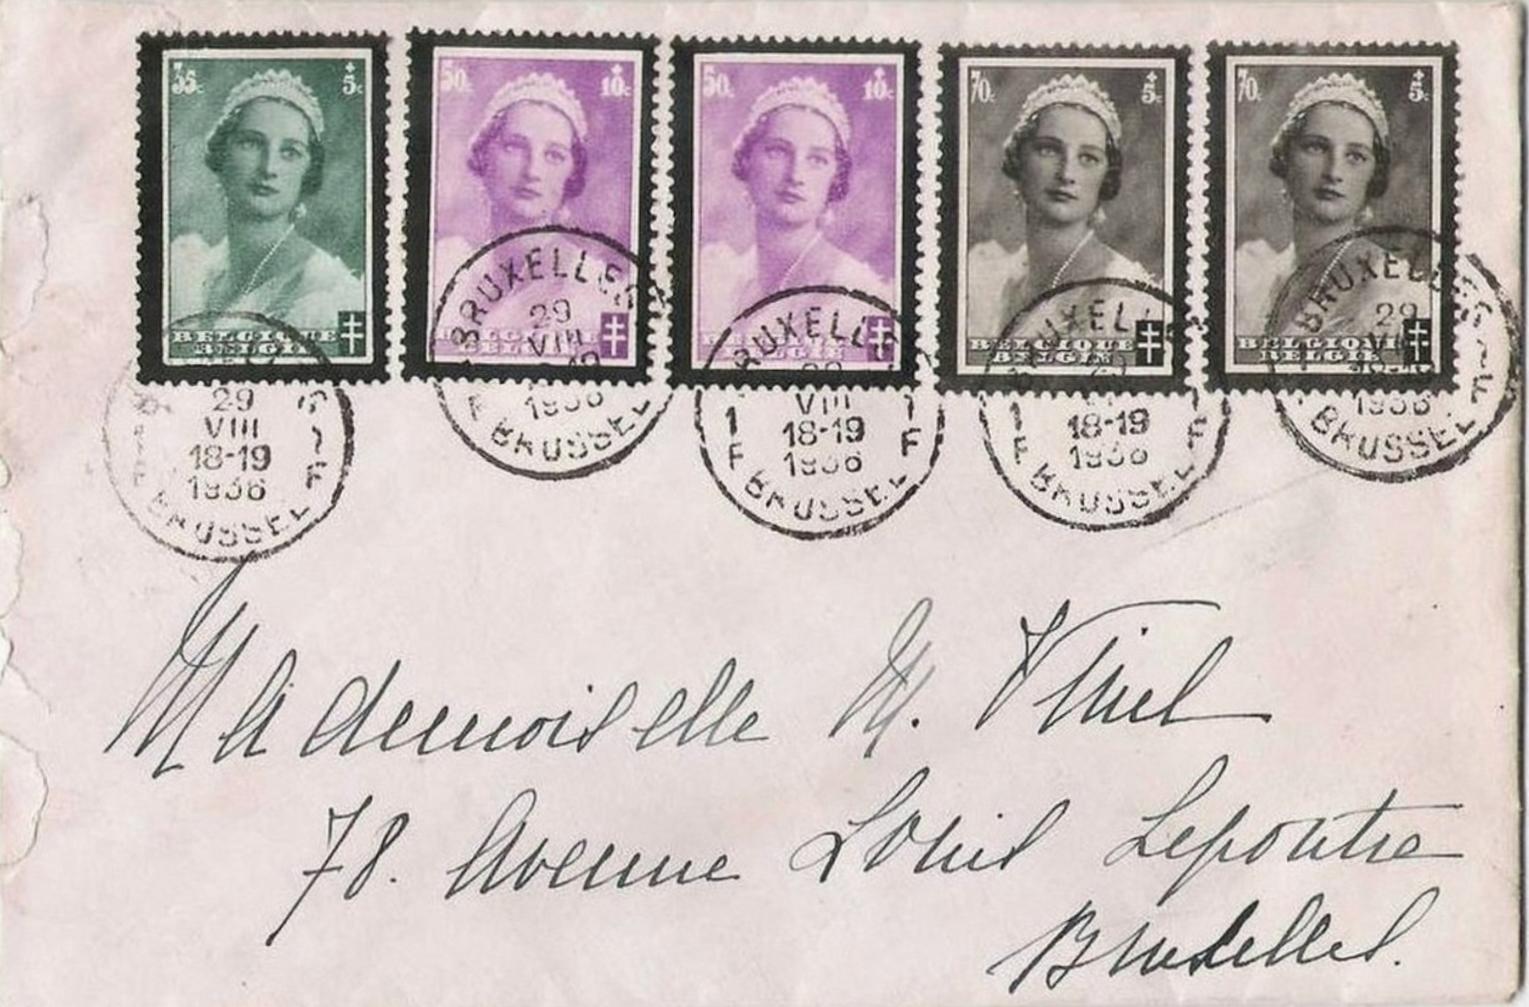 35c +5c
BELGIQUE
BELGIË
50c +10c
BELGIQUE
BELGIË
50c +10c
BELGIQUE
BELGIË
70c +5c
BELGIQUE
BELGIË
70c +5c
BELGIQUE
BELGIË
29
VIII
18-19
1936
1F 1F
BRUSSEL
BRUXELLES
29
VIII
1936
BRUSSEL
BRUXELLES
VIII
18-19
1936
1F 1F
BRUSSEL
BRUXELLES
18-19
1936
1F F
BRUSSEL
BRUXELLES
29
1936
BRUSSEL
Mademoiselle M.
78. Avenue Louis Lepoutre
Bruxelles.